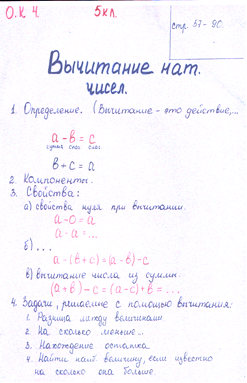 О.К 4.
5кл.
стр. 57-90.
Вычитание нат.
чисел.
1. Определение. (Вычитание - это действие,...
а - в = с
в + с = а
2. Компоненты.
3. Свойства:
а) свойства нуля при вычитании.
а - 0 = а
а - а = ...
б) ...
а - (в + с) = (а - в) - с
в) вычитание числа из суммы.
(а + в) - с = (а - с) + в = ...
4. Задачи, решаемые с помощью вычитания:
1. Разница между величинами.
2. На сколько меньше...
3. Нахождение остатка.
4. Найти величину, если известно
на сколько она больше.